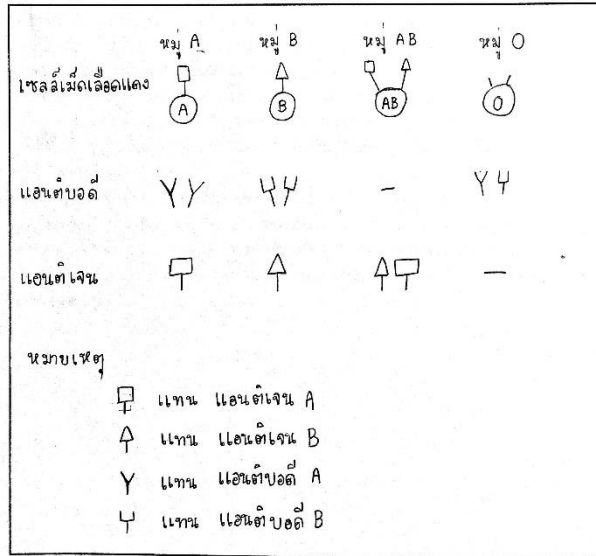 หมู่ A หมู่ B หมู่ AB หมู่ O
เซลล์เม็ดเลือดแดง
A B AB O
แอนติบอดี -
แอนติเจน -
หมายเหตุ
แทน แอนติเจน A
แทน แอนติเจน B
แทน แอนติบอดี A
แทน แอนติบอดี B